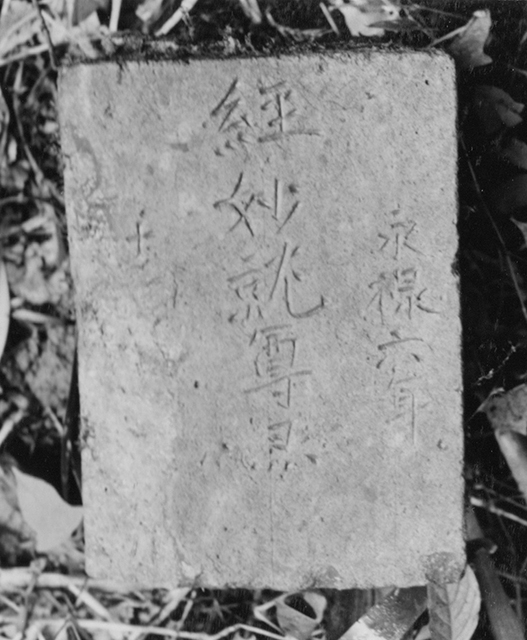 永禄六年
經妙就尊灵
十